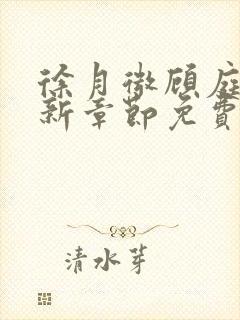 徐月微顾庭
新章節免費
清水芽